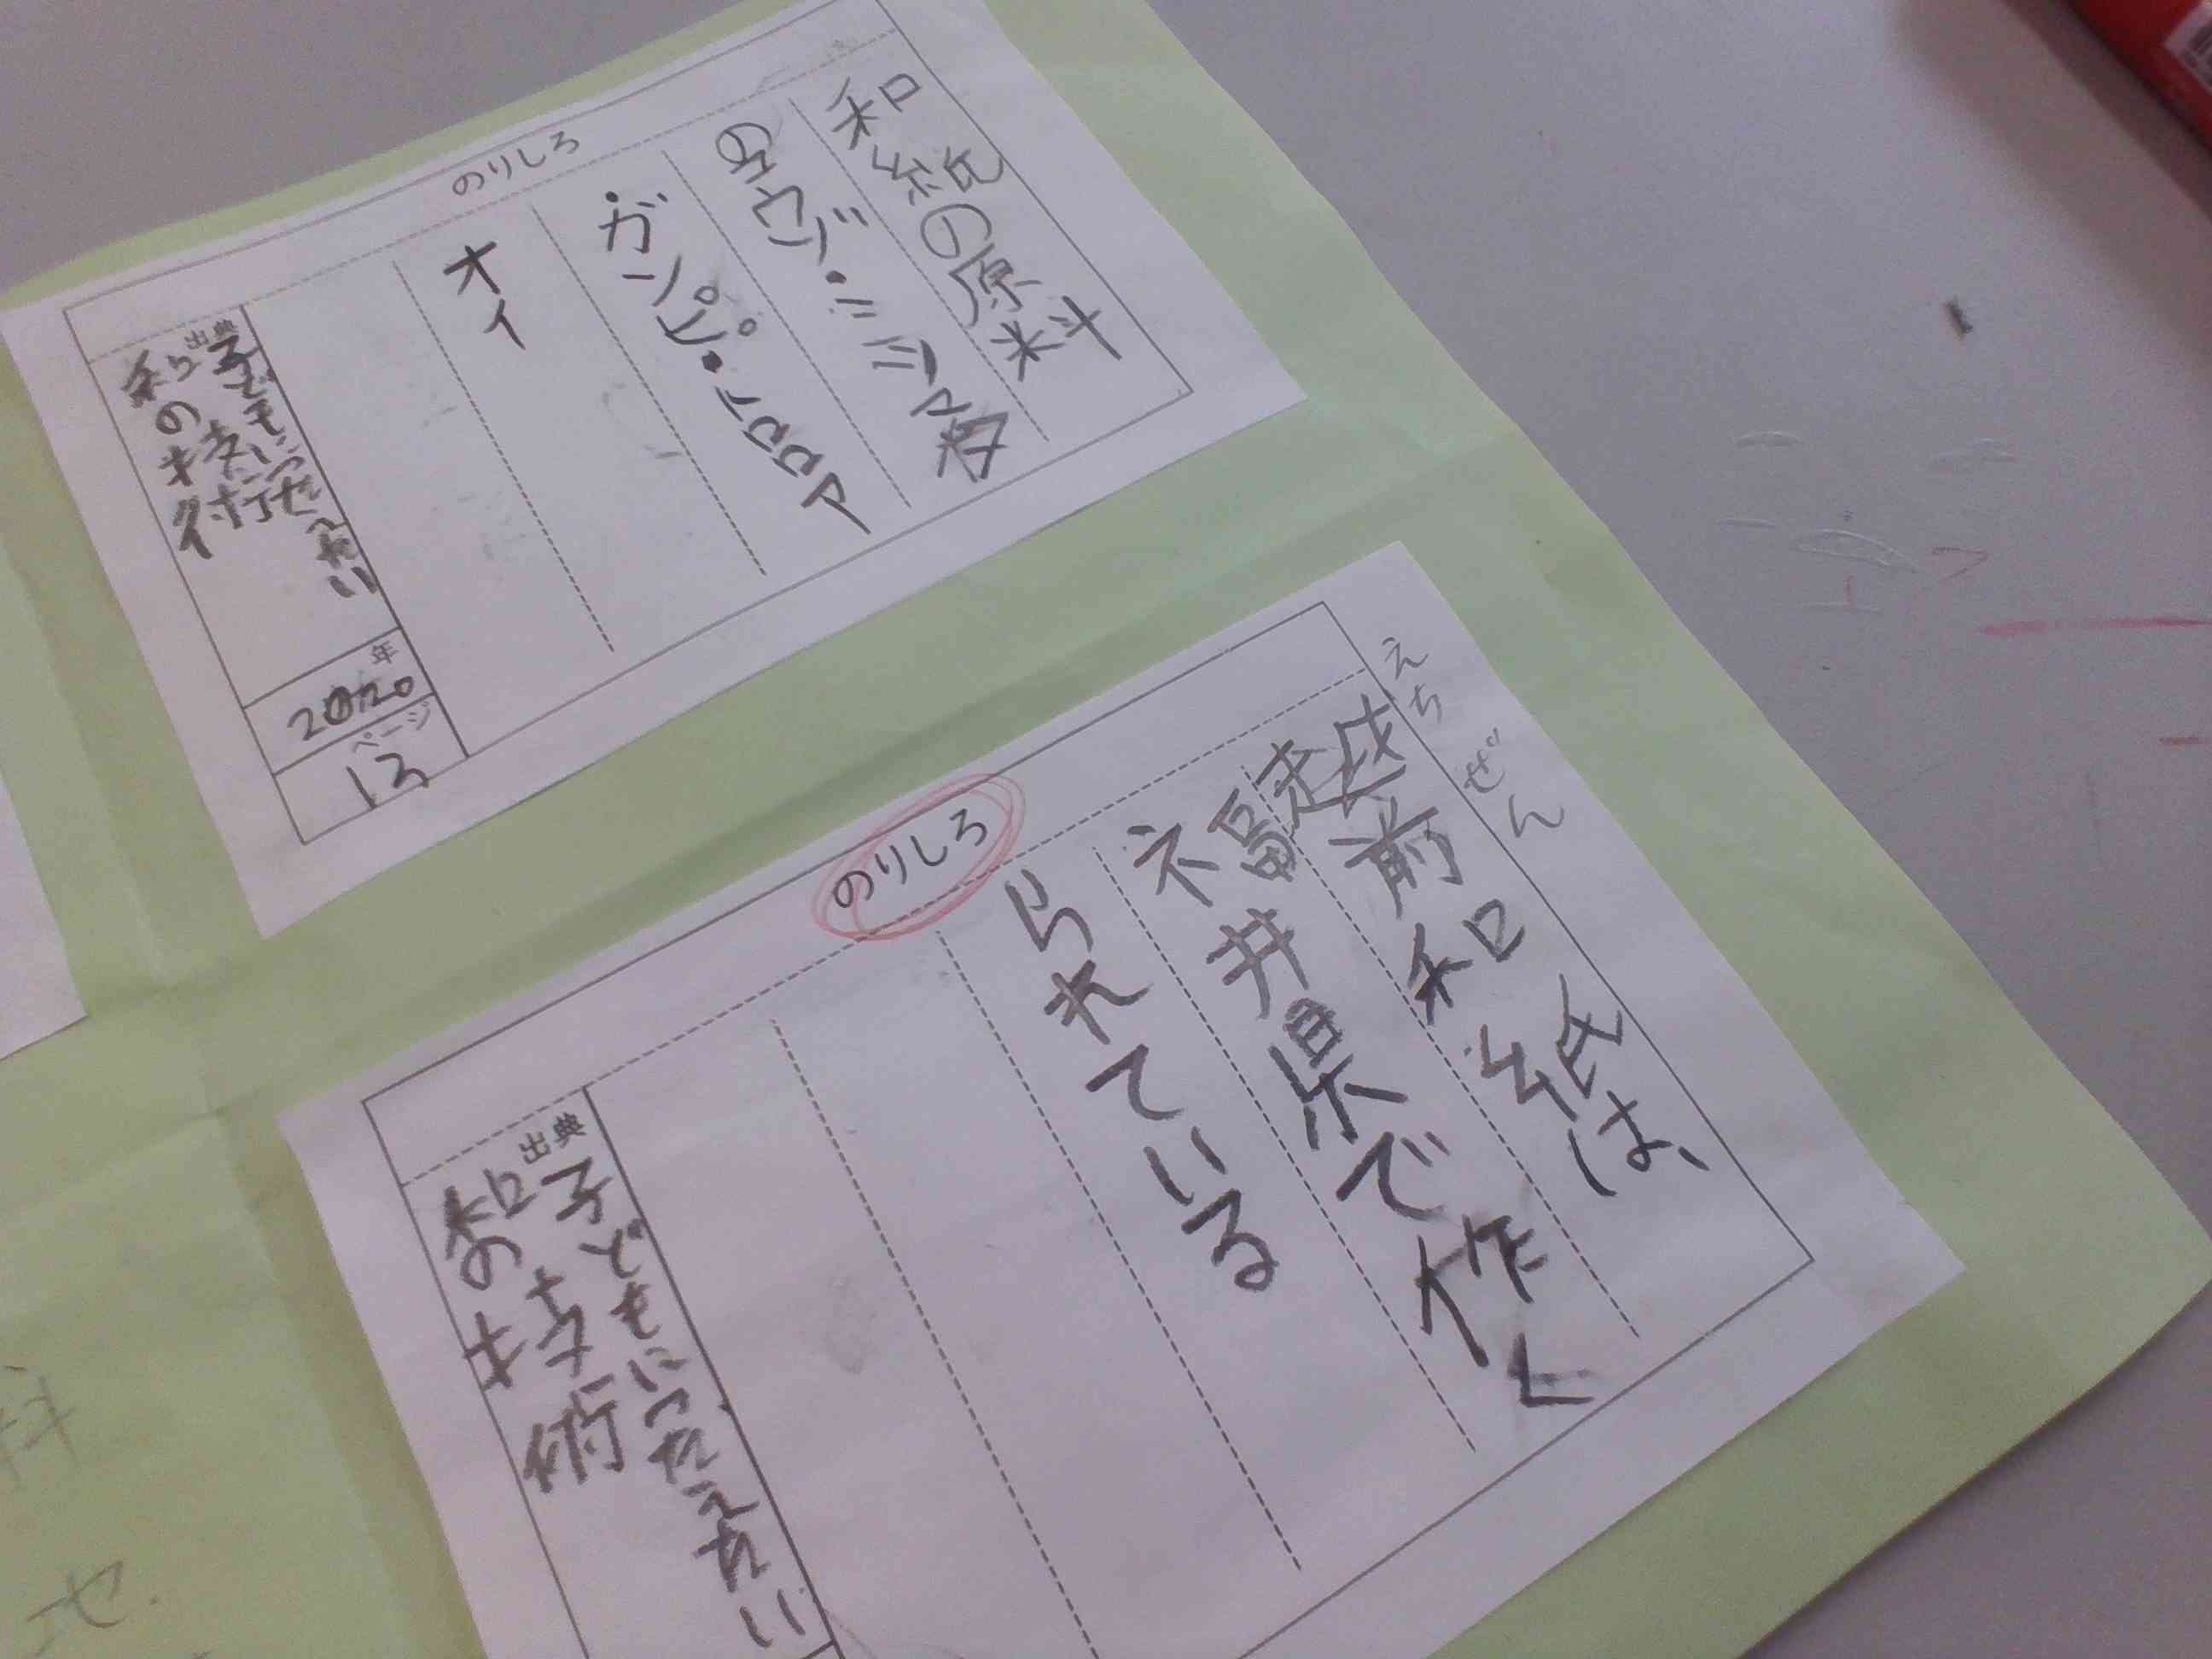 のりしろ
和紙の原料
のコウゾ・ミツマタ
・ガンピ・トロロア
オイ
出典
子どもにつたえたい
和の技術
年
2020
ページ
13
のりしろ
えちぜん
越前和紙は、
福井県で作く
られている
出典
子どもにつたえたい
和の技術